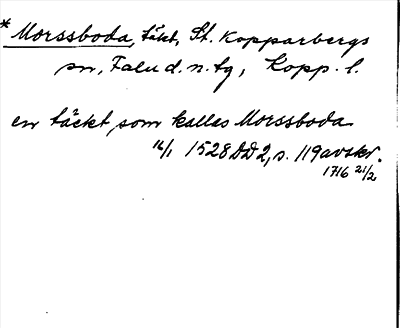 * Morssboda, täkt, St. Kopparbergs
sn, Falu d. n. tg, Kopp. l.
en täckt som kallas Morssboda
16/1 1528 DD 2, s. 119 avskr.
1716 21/2